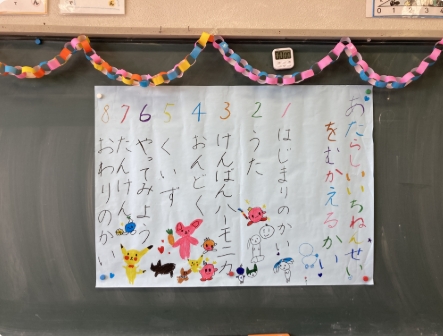 あたらしいいちねんせい
をむかえるかい
1 はじまりのかい
2 うた
3 けんばんハーモニカ
4 おんどく
5 くいず
6 やってみよう
7 たんけん
8 おわりのかい